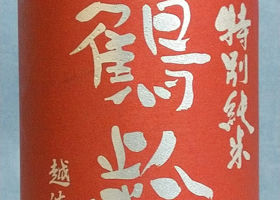 特別純米
鶴齢
越後